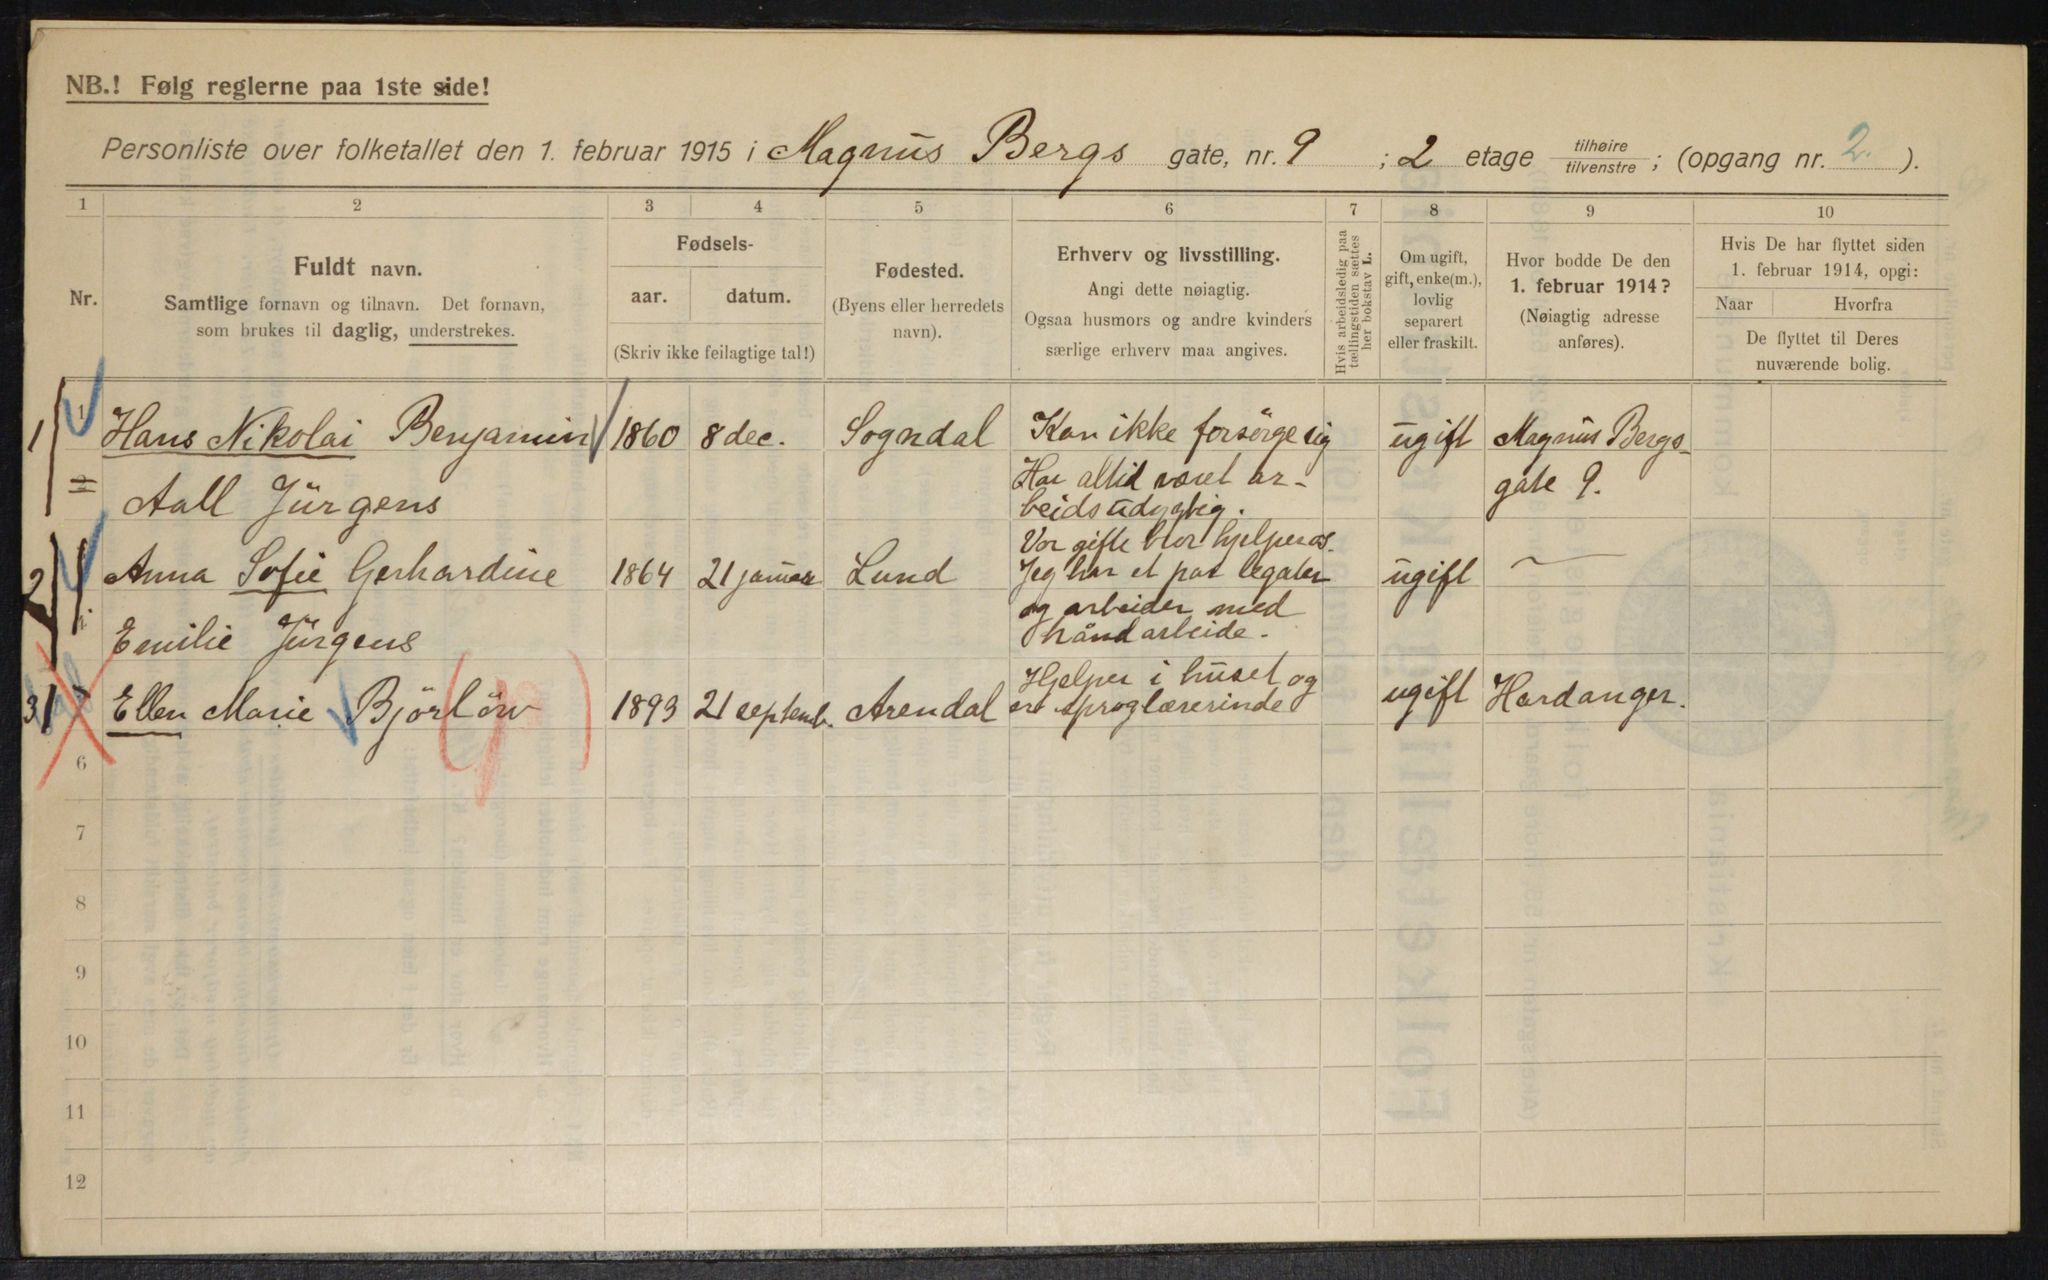 NB.! Følg reglerne paa 1ste side!
Personliste over folketallet den 1. februar 1915 i Magnus Bergs gate, nr. 9 ; 2 etage tilhøire tilvenstre ; (opgang nr. 2. ).
1 2 3 4 5 6 7 8 9 10
Nr.
Fuldt navn.
Samtlige fornavn og tilnavn. Det fornavn,
som brukes til daglig, understrekes.
Fødsels-
aar. datum.
(Skriv ikke feilagtige tal!)
Fødested.
(Byens eller herredets
navn).
Erhverv og livsstilling.
Angi dette nøiagtig.
Ogsaa husmors og andre kvinders
særlige erhverv maa angives.
Hvis arbeidsledig paa
tællingstiden sættes
her bokstav L.
Om ugift,
gift, enke(m.),
lovlig
separert
eller fraskilt.
Hvor bodde De den
1. februar 1914?
(Nøiagtig adresse
anføres).
Hvis De har flyttet siden
1. februar 1914, opgi:
Naar Hvorfra
De flyttet til Deres
nuværende bolig.
1 Hans Nikolai Benjamin 1860 8 dec. Sogndal Kan ikke forsörge sig ugift Magnus Bergs-
Aall Jürgens Har altid været ar- gate 9.
beidsudygtig.
Vor gifte bror hjelper os.
2 Anna Sofie Gerhardine 1864 21 januar Lund Jeg har et par legater ugift
og arbeider med
Emilie Jürgens håndarbeide.
Hjelper i huset og
3 Ellen Marie Björlöw 1893 21 septemb. Arendal er sproglærerinde ugift Hardanger.
6
7
8
9
10
11
12